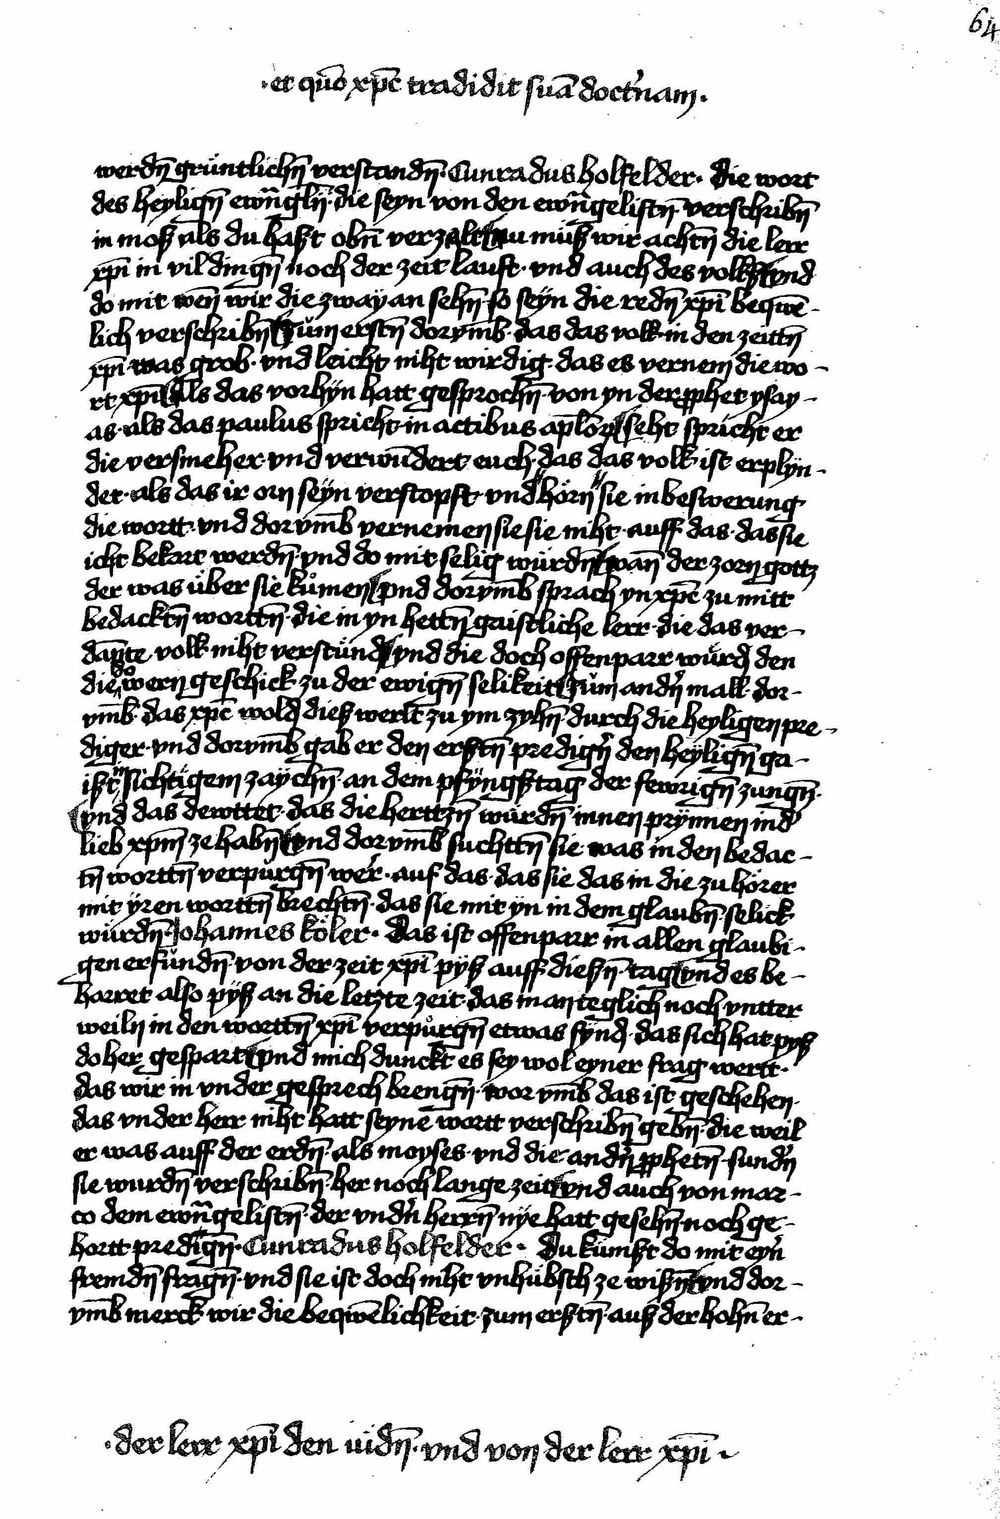 64
·et quō xp̄c tradidit suā doct'nam·
werdn̄ grüntlichn̄ verstandn̄· Cunradus holfelder· Die wort
des heylign̄ ewāgln̄· die seyn von den ewāgelistn̄ verschribn̄
in moß als du haßt obn̄ verzelt nu müß wir achtn̄ die lerr
xp̄i in vil dingn̄ noch der zeit lauft· vnd auch des volkß vnd
do mit wen̄ wir die zwaÿ an sehn̄ so seyn die redn̄ xp̄i beqwē-
lich verschribn̄ Zům erstn̄ dorvm̄b· das das volk in den zeittn̄
xp̄i was grob· vnd leicht niht wirdig· das es vernem die wo-
rt xp̄i Als das vorhÿn hatt gesprochn̄ von yn der ꝓphet ysay-
as· als das paulus spricht in actibus apl̄oꝝ seht spricht er
die versmeher· vnd verwundert euch· das das volk ist erplÿn-
det· als das ir orn seyn verstopft vnd "hörn" sie in beswerung
die wortt· vnd dorvm̄b vernemen sie sie niht· auff das· das sie
icht bekart werdn̄· vnd do mit selig würdn̄ wan̄ der zorn gottz
der was über sie kůmen vnd dorvm̄b sprach yn xp̄c zu mitt
bedacktn̄ worttn̄· die in yn hettn̄ gaistliche lerr· die das ver-
dam̄te volk niht verstůnd vnd die doch offenparr würd den
die do wern geschick zu der ewign̄ selikeit Zům andn̄ mall dor-
vm̄b· das xp̄c wold dieß werlt zu ym zyhn̄· durch die heyligen pre-
diger· vnd dorvm̄b gab er den erstn̄ predign̄ den heylign̄ ga-
ist in sichtigem zaychn̄· an dem pfÿngstag der fewrign̄ zungn̄·
vnd das dewttet· das die herttzn̄ würdn̄ innen prÿnnen in d'
lieb xp̄m ze habn̄ vnd dorvm̄b suchttn̄ sie was in den bedac-
tn̄ worttn̄ verpůrgn̄ wer· auf das· das sie das in die zu hörer
mit ÿren worttn̄ brechtn̄· das sie mit ÿn in dem glaubn̄ selick
würdn̄· Johannes köler· Das ist offenparr in allen glaubi-
gen erfůndn̄ von der zeit xp̄i pÿß auff dießn̄ tag vnd es be-
harret also pÿß an die letzte zeit das man teglich noch vntter
weiln in den worttn̄ xp̄i verpůrgn̄ etwas fÿnd· das sich hat pyß
do her gespart vnd mich dunckt es sey wol eyner frag wertt·
das wir in vnder gesprech brengn̄· wor vm̄b das ist geschehen·
das vnder herr niht hatt seynē wortt verschribn̄ gebn̄· die weil
er was auff der erdn̄· als moyses· vnd die andn̄ ꝓphetn̄· sundn̄
sie wurdn̄ verschribn̄· her noch lange zeit vnd auch von mar-
co dem ewāgelistn̄· der vndn̄ herrn̄ nÿe hatt gesehn̄· noch ge-
hortt predign̄· Cunradus holfelder· Du kümßt do mit eyn̄
fremdn̄ fragn̄· vnd sie ist doch niht vnhübsch ze wißn̄ vnd dor-
vm̄b merck wir die beqwēlichkeit· zum erstn̄ auß der hohn̄ er-
·der lerr xp̄i den iüdn̄· vnd von der lerr xp̄i·